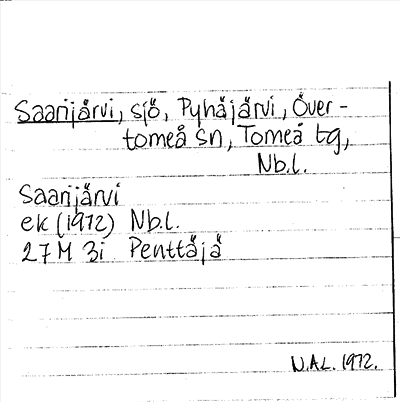 Saarijärvi, sjö, Pyhäjärvi, Över-
torneå sn, Torneå tg,
Nb.l.
Saarijärvi
ek (1972) Nb.l.
27M 3i Penttäjä
N.AL. 1972.